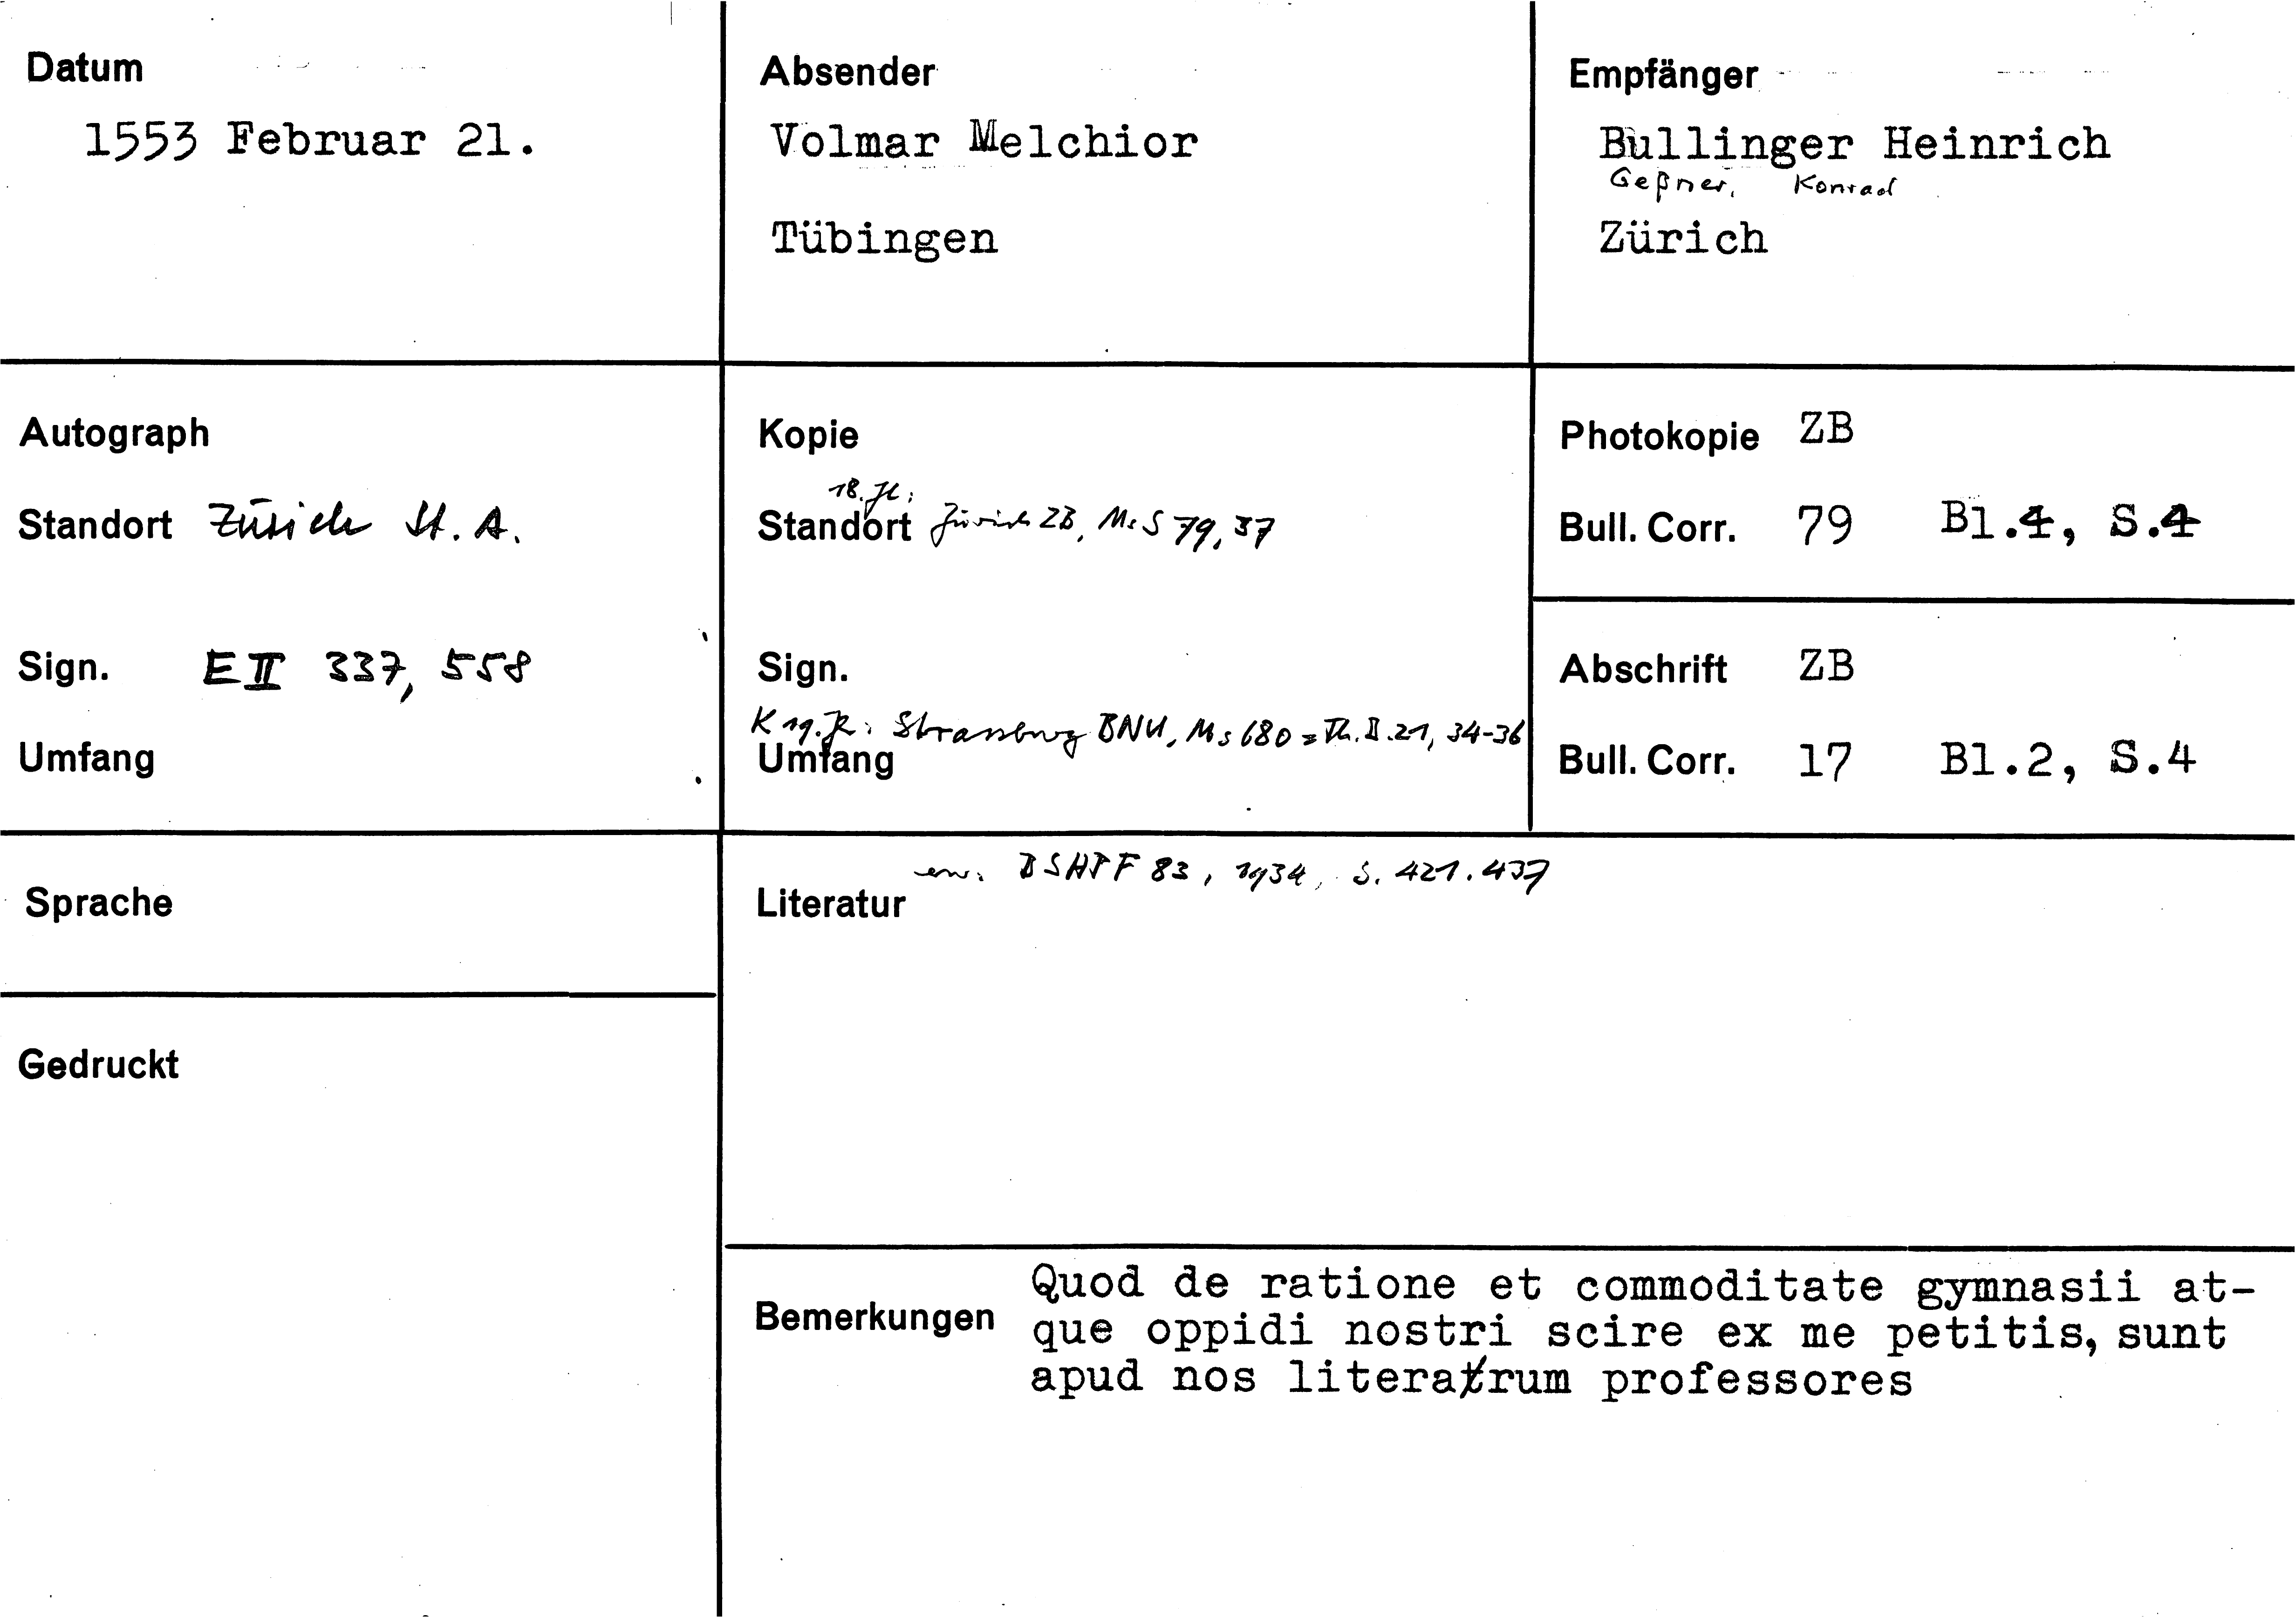 Datum
1553 Februar 21.
Absender
Volmar Melchior
Tübingen
Empfänger
Bullinger Heinrich
Geßner, Konrad
Zürich
Autograph
Standort Zürich St. A.
Sign. E II 337, 558
Umfang
Kopie
18. Jh:
Standort Zürich ZB, Ms S 79, 37
Sign.
K 19. Jh: Strassburg BNU, Ms 680 = Th. II. 21, 34-36
Umfang
Photokopie ZB
Bull. Corr. 79 Bl.4, S.4
Abschrift ZB
Bull. Corr. 17 Bl.2, S.4
Sprache
Gedruckt
erw. BSHPF 83, 1934, S. 421. 437
Literatur
Bemerkungen
Quod de ratione et commoditate gymnasii at-
que oppidi nostri scire ex me petitis, sunt
apud nos literarum professores